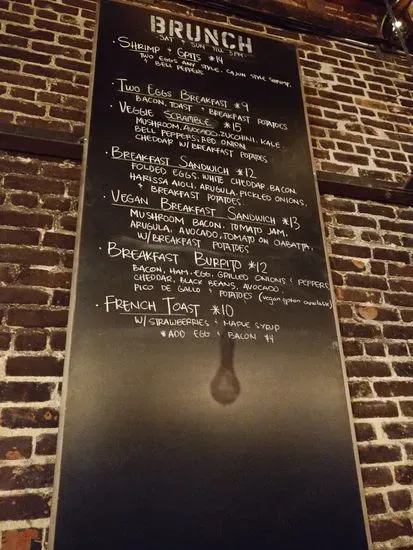 BRUNCH
SAT & SUN TILL 3PM
· SHRIMP & GRITS $14
TWO EGGS ANY STYLE, CAJUN STYLE SHRIMP,
BELL PEPPERS
· TWO EGGS BREAKFAST $9
BACON, TOAST & BREAKFAST POTATOES
· VEGGIE SCRAMBLE $15
MUSHROOM, AVOCADO, ZUCCHINI, KALE,
BELL PEPPERS, RED ONION,
CHEDDAR W/ BREAKFAST POTATOES
· BREAKFAST SANDWICH $12
FOLDED EGGS, WHITE CHEDDAR, BACON,
HARISSA AIOLI, ARUGULA, PICKLED ONIONS,
& BREAKFAST POTATOES
· VEGAN BREAKFAST SANDWICH $13
MUSHROOM BACON, TOMATO JAM,
ARUGULA, AVOCADO, TOMATO ON CIABATTA,
W/ BREAKFAST POTATOES
· BREAKFAST BURRITO $12
BACON, HAM, EGG, GRILLED ONIONS & PEPPERS
CHEDDAR, BLACK BEANS, AVOCADO,
PICO DE GALLO & POTATOES (vegan option available)
· FRENCH TOAST $10
W/ STRAWBERRIES & MAPLE SYRUP
*ADD EGG & BACON $4